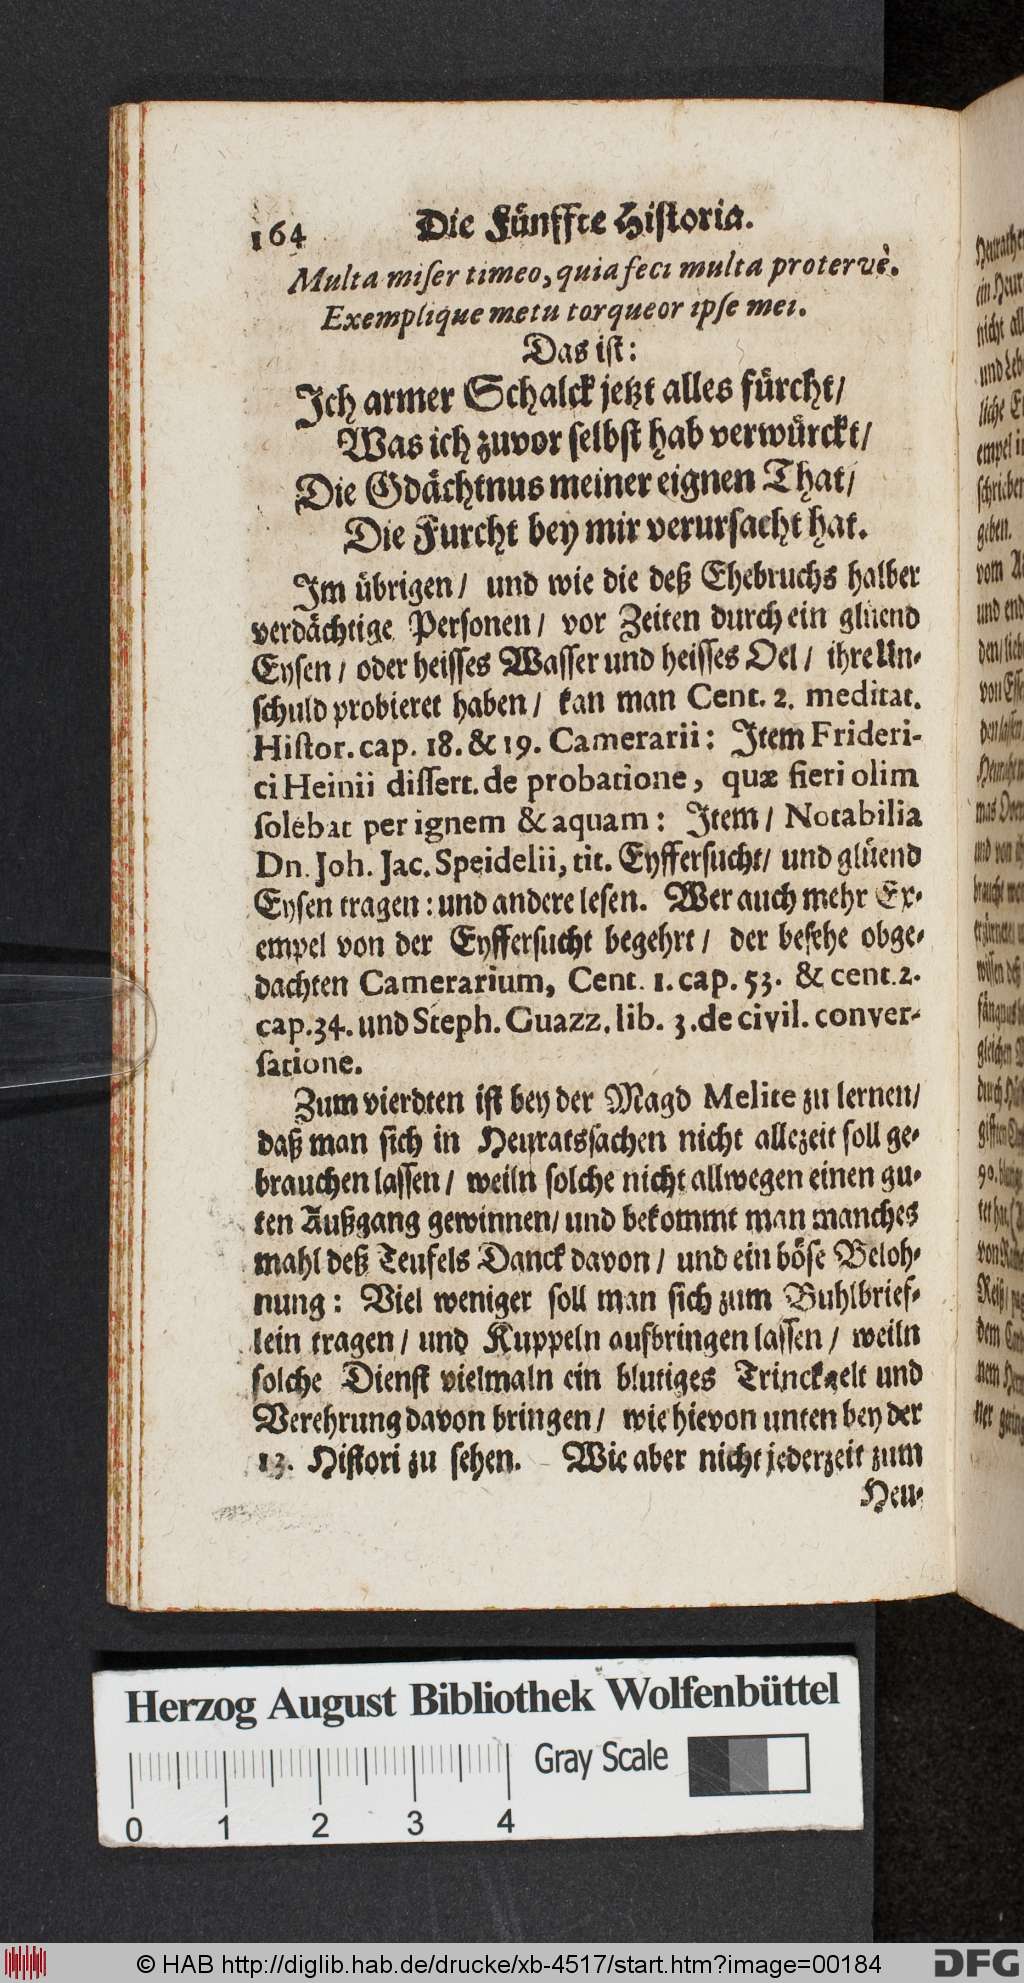 164 Die Fünffte Historia.
Multa miser timeo, quia feci multa protervè.
Exemplique metu torqueor ipse mei.
Das ist:
Ich armer Schalck jetzt alles fürcht/
Was ich zuvor selbst hab verwürckt/
Die Gdächtnus meiner eignen That/
Die Furcht bey mir verursacht hat.
Im übrigen/ und wie die deß Ehebruchs halber
verdächtige Personen/ vor Zeiten durch ein glüend
Eysen/ oder heisses Wasser und heisses Oel/ ihre Un-
schuld probieret haben/ kan man Cent. 2. meditat.
Histor. cap. 18. & 19. Camerarii: Item Frideri-
ci Heinii dissert. de probatione, quæ fieri olim
solebat per ignem & aquam: Item/ Notabilia
Dn. Joh. Jac. Speidelii, tit. Eyffersucht/ und glüend
Eysen tragen: und andere lesen. Wer auch mehr Ex-
empel von der Eyffersucht begehrt/ der besehe obge-
dachten Camerarium, Cent. 1. cap. 53. & cent. 2.
cap. 34. und Steph. Guazz. lib. 3. de civil. conver-
satione.
Zum vierdten ist bey der Magd Melite zu lernen/
daß man sich in Heuratssachen nicht allezeit soll ge-
brauchen lassen/ weiln solche nicht allwegen einen gu-
ten Außgang gewinnen/ und bekommt man manches
mahl deß Teufels Danck davon/ und ein böse Beloh-
nung: Viel weniger soll man sich zum Buhlbrief-
lein tragen/ und Kuppeln aufbringen lassen/ weiln
solche Dienst vielmaln ein blutiges Trinckgelt und
Verehrung davon bringen/ wie hievon unten bey der
13. Histori zu sehen. Wie aber nicht jederzeit zum
Heu-
Herzog August Bibliothek Wolfenbüttel
Gray Scale
0 1 2 3 4
© HAB http://diglib.hab.de/drucke/xb-4517/start.htm?image=00184
DFG